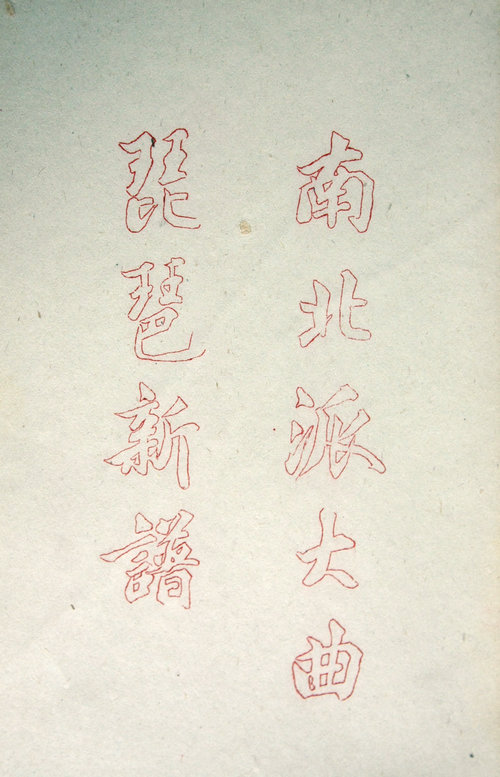 南北派大曲
琵琶新譜